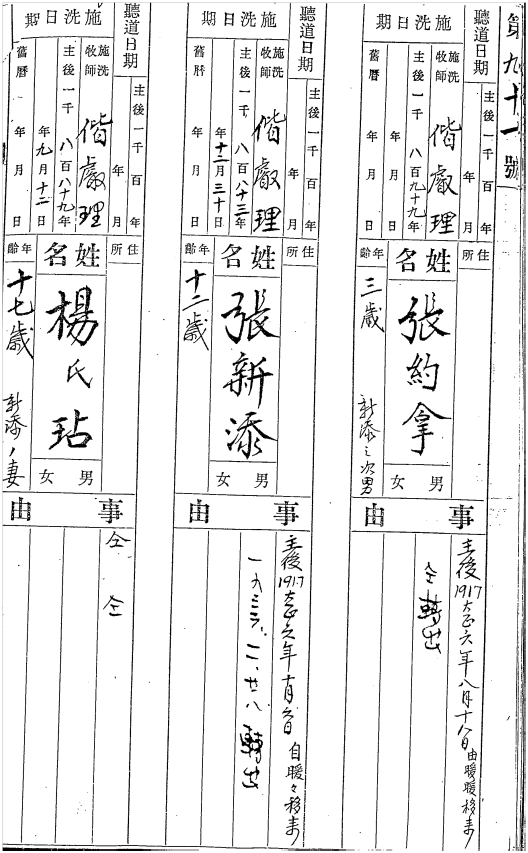 第九十一號
聽道日期 主後一千 百 年 月
施洗日期
施洗牧師 偕叡理
主後一千八百九十九年
舊曆 年 月 日
住所
姓名 張約拿
年齡 三歲 新添之次男
男 女
事由
主後1917大正六年八月十八日由暖暖移来
仝 轉出
聽道日期 主後一千 百 年 月
施洗日期
施洗牧師 偕叡理
主後一千八百八十三年
年十二月三十日
舊曆 年 月 日
住所
姓名 張新添
年齡 十二歲
男 女
事由
主後1917大正六年 月 日 自暖々移来
一九三三、二、廿八、轉出
聽道日期 主後一千 百 年 月
施洗日期
施洗牧師 偕叡理
主後一千八百八十九年
年九月十二日
舊曆 年 月 日
住所
姓名 楊氏玷
年齡 十七歲 新添ノ妻
男 女
事由
仝 仝